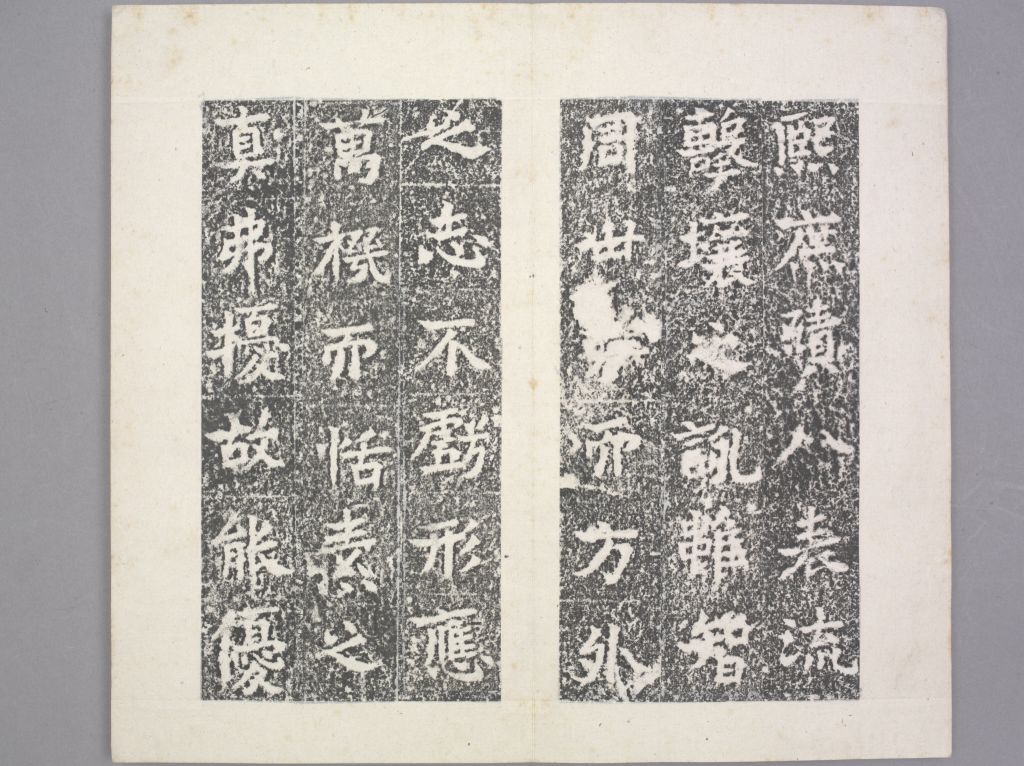 熙庶績八表流
擊壤之訊雖智
周世勞而方外
之志不虧形應
萬機而恬素之
真弗擾故能優